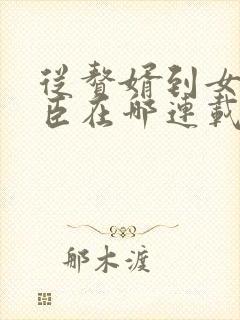 從贅婿到女
臣在哪連載
郁木渡